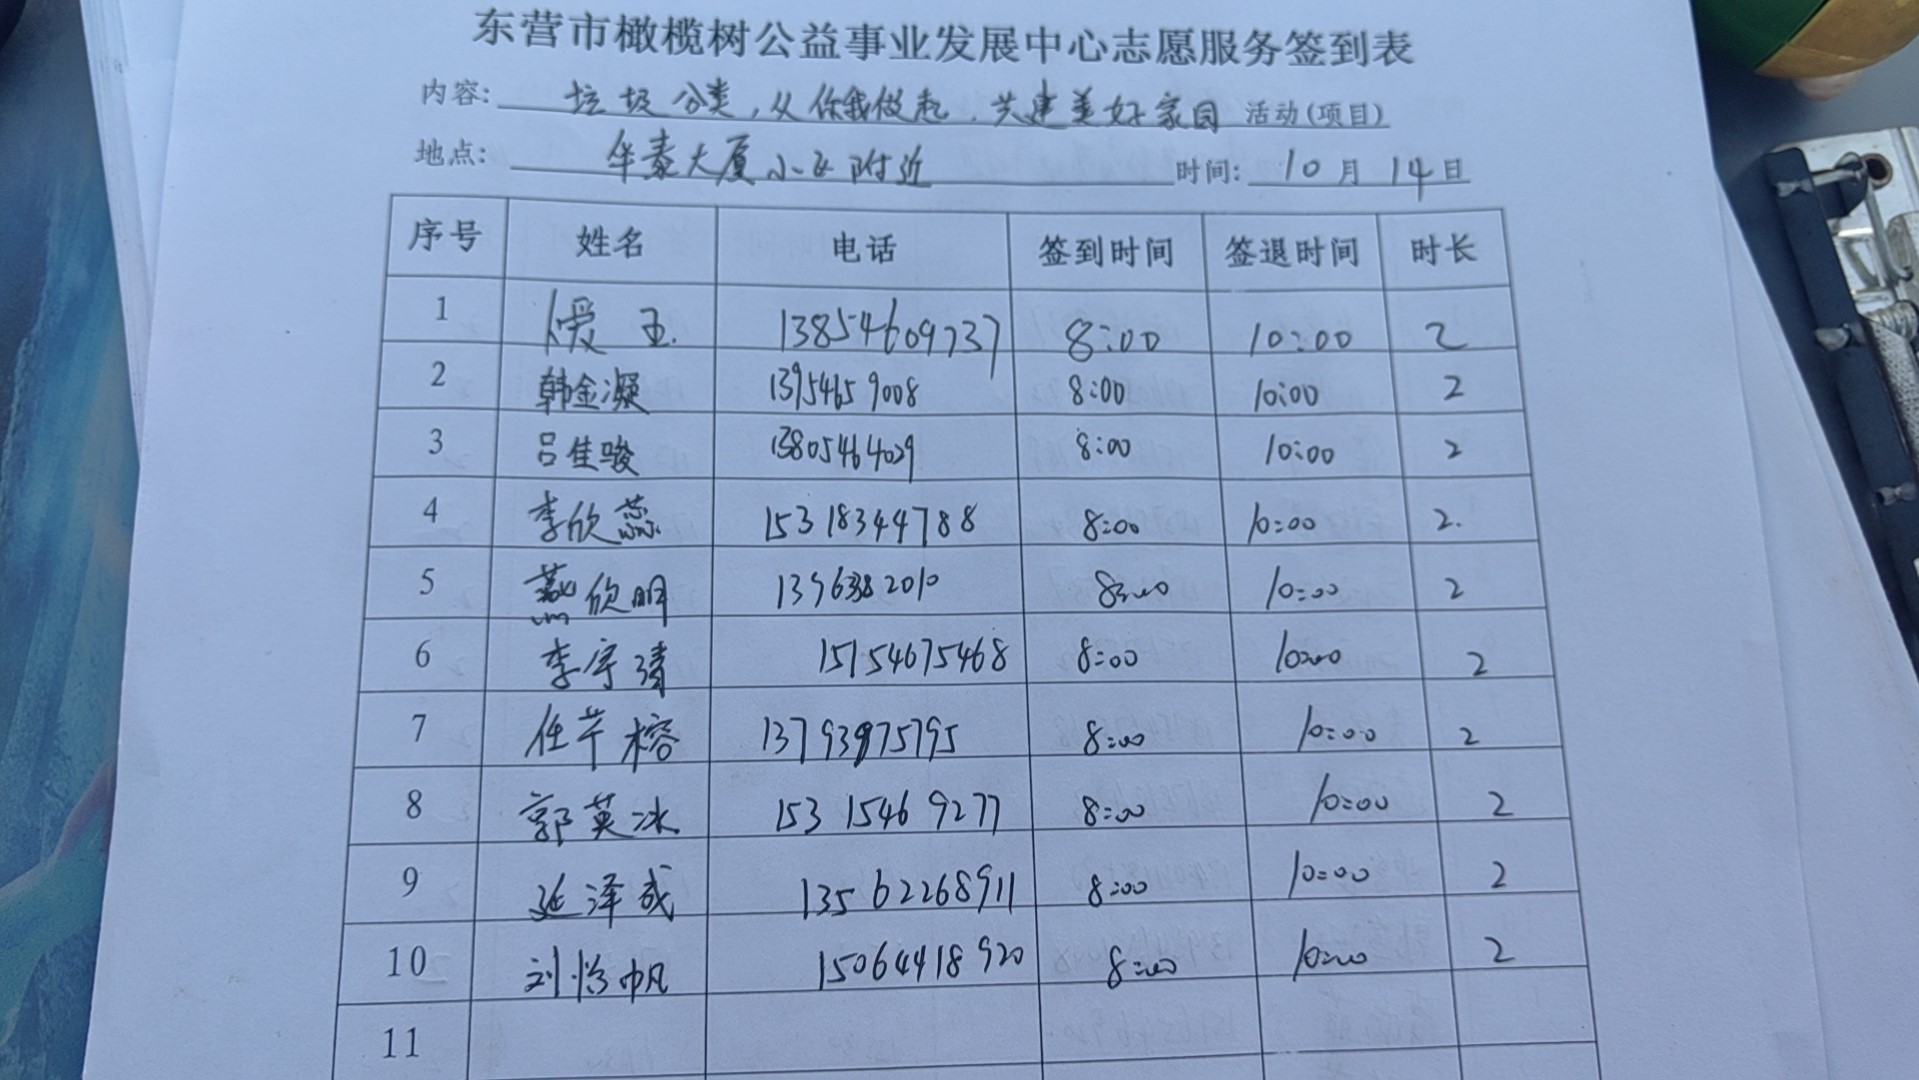 东营市橄榄树公益事业发展中心志愿服务签到表
内容: 垃圾分类,从你我做起,共建美好家园 活动(项目)
地点: 华泰大厦小区附近 时间: 10月14日
序号 姓名 电话 签到时间 签退时间 时长
1 13854609737 8:00 10:00 2
2 韩金凝 13954659008 8:00 10:00 2
3 吕佳骏 13805464029 8:00 10:00 2
4 李欣蕊 15318344788 8:00 10:00 2.
5 燕欣明 8:00 10:00 2
6 李宇清 15154675468 8:00 10:00 2
7 任芊榕 13793975795 8:00 10:00 2
8 郭英冰 15315469277 8:00 10:00 2
9 延泽成 13562268911 8:00 10:00 2
10 刘怡帆 15064418920 8:00 10:00 2
11